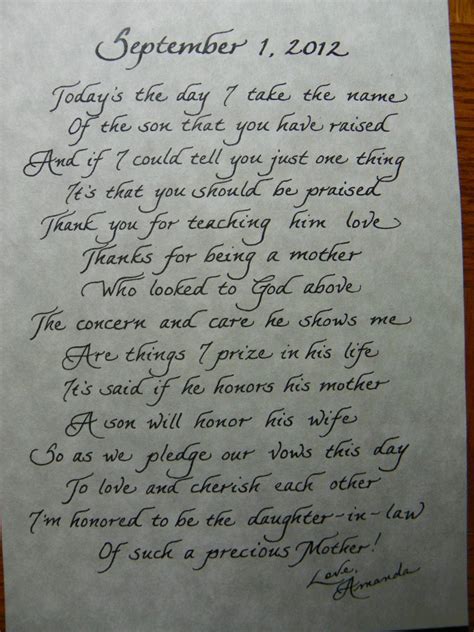 September 1, 2012
Today's the day I take the name
Of the son that you have raised
And if I could tell you just one thing
It's that you should be praised
Thank you for teaching him love
Thanks for being a mother
Who looked to God above
The concern and care he shows me
Are things I prize in his life
It's said if he honors his mother
A son will honor his wife
So as we pledge our vows this day
To love and cherish each other
I'm honored to be the daughter-in-law
Of such a precious Mother!
Love,
Amanda